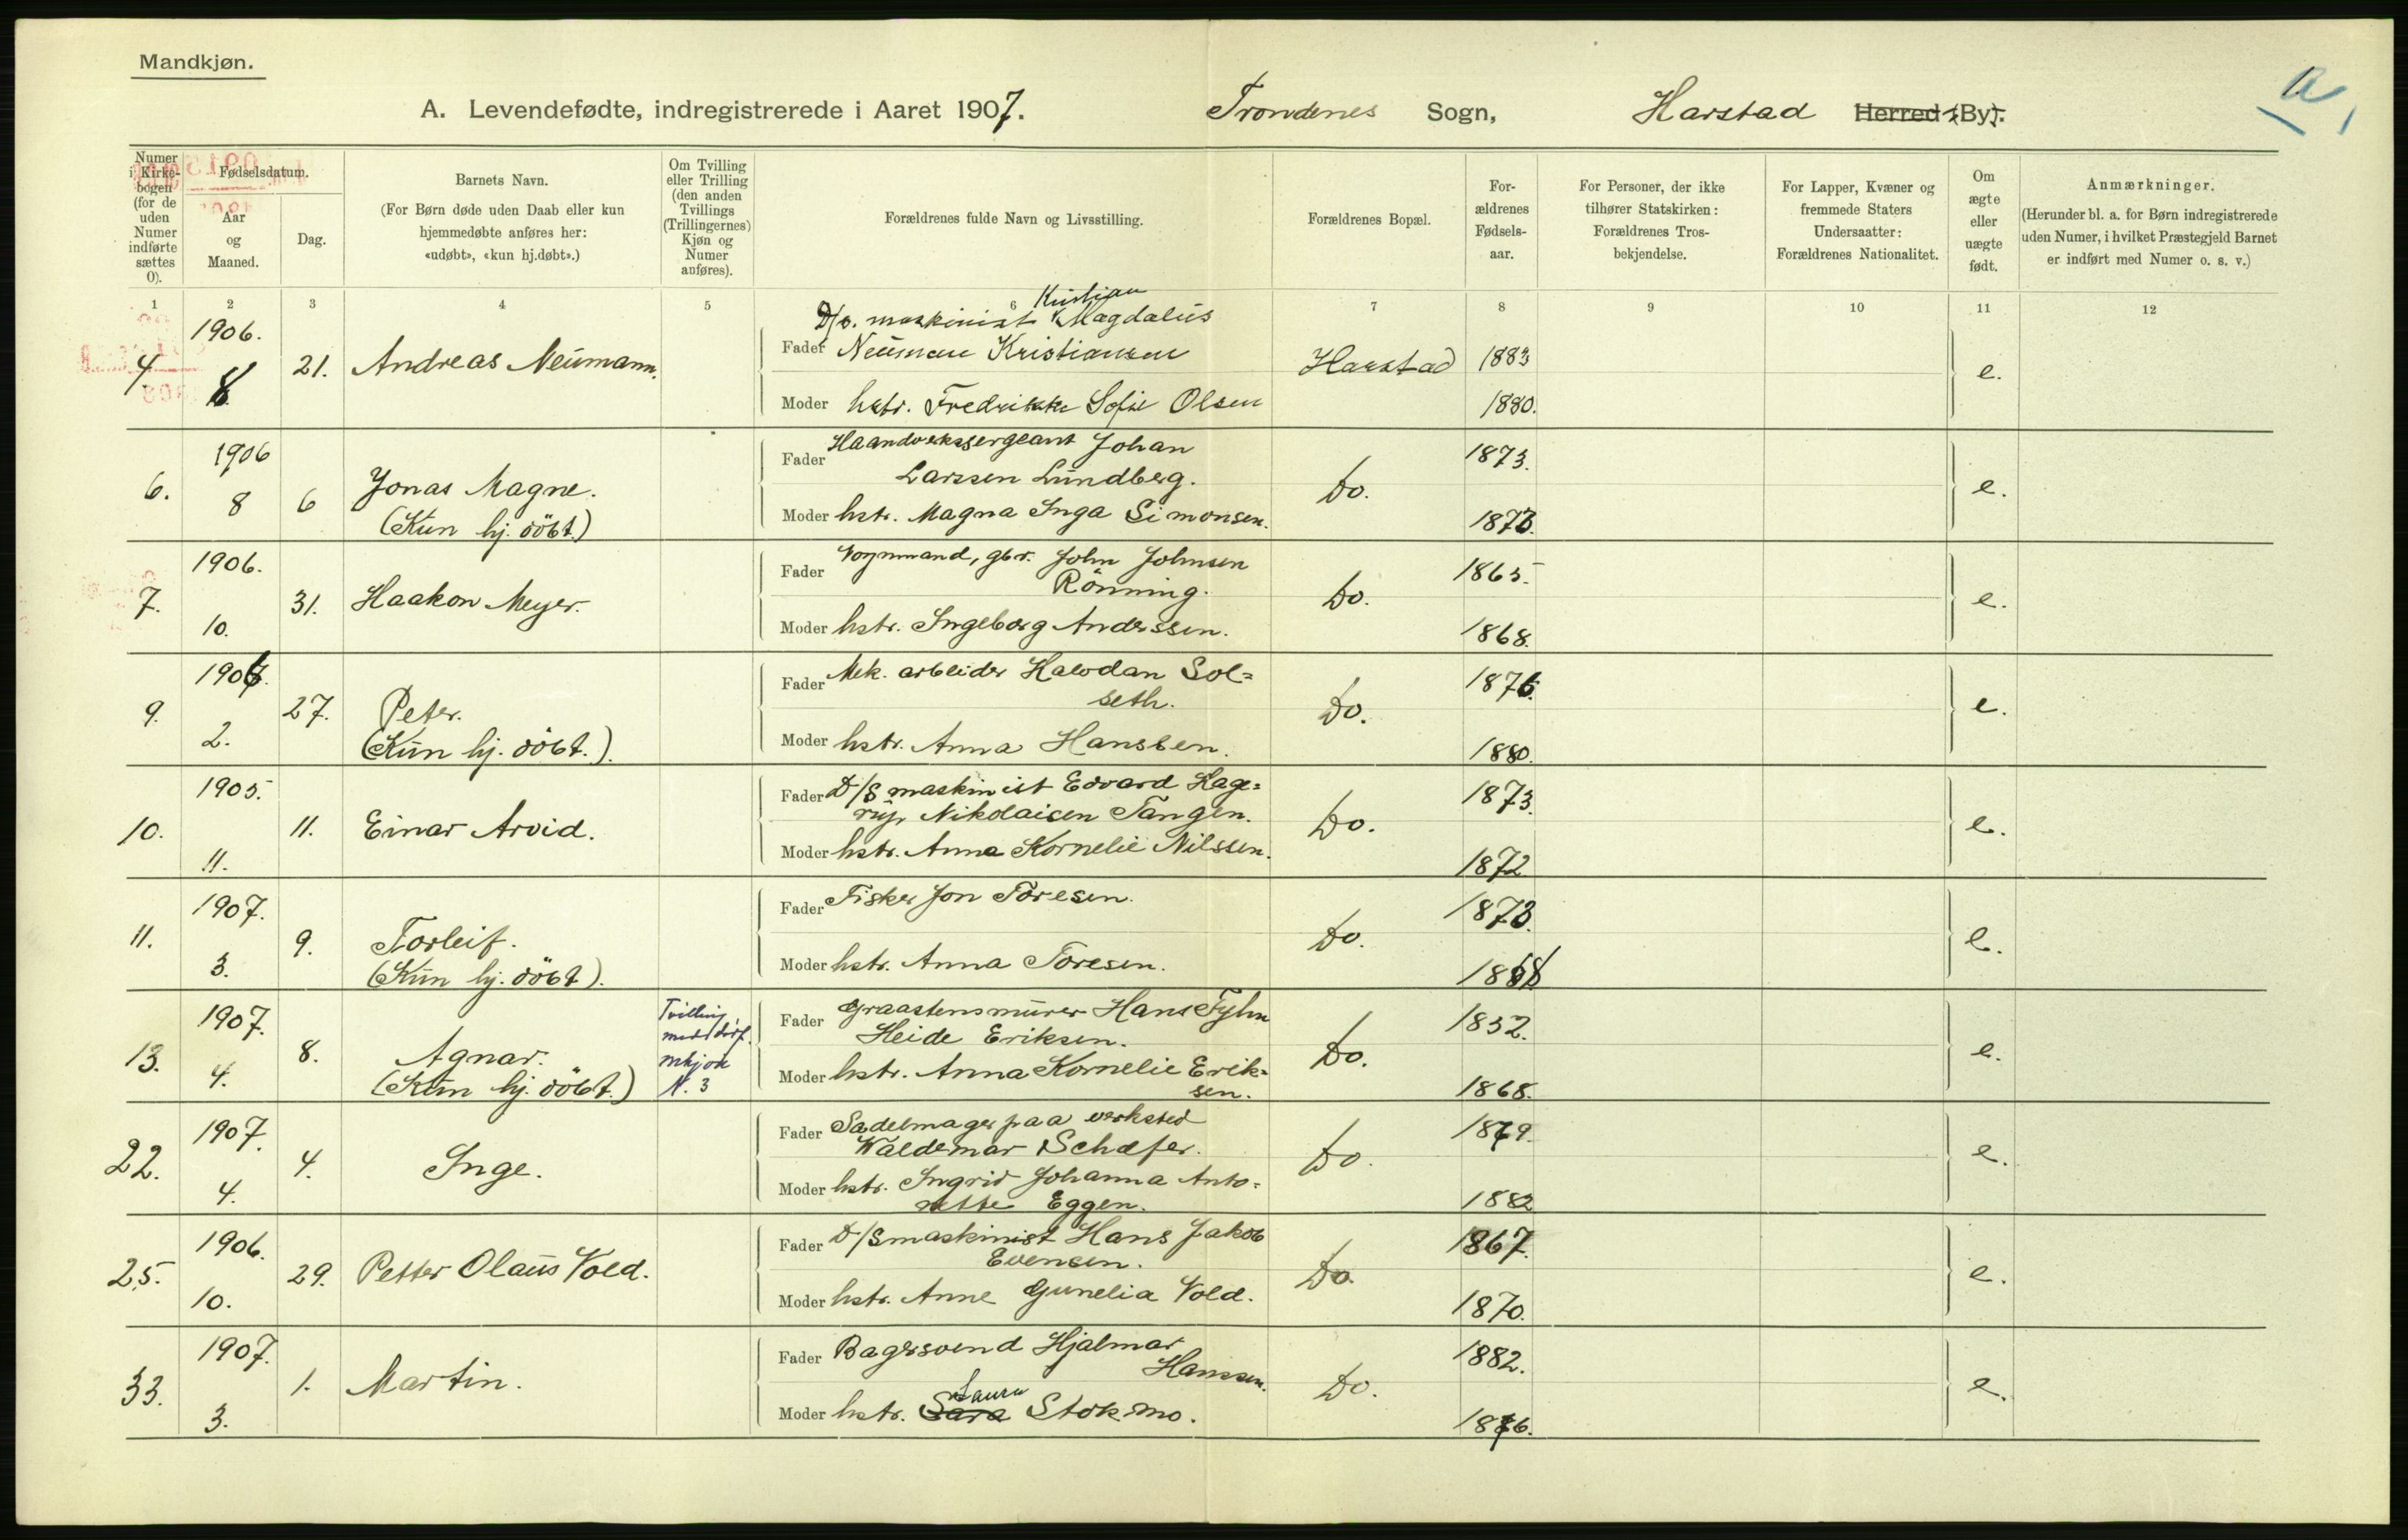 Mandkjøn.
A. Levendefødte, indregistrerede i Aaret 1907.
Trondenes Sogn,
Harstad Herred (By).
a,
Numer i Kirkebogen (for de uden Numer indførte sættes 0).
Fødselsdatum.
Aar og Maaned.
Dag.
Barnets Navn.
(For Børn døde uden Daab eller kun hjemmedøbte anføres her: «udøbt», «kun hj.døbt».)
Om Tvilling eller Trilling (den anden Tvillings (Trillingernes) Kjøn og Numer anføres).
Forældrenes fulde Navn og Livsstilling.
Forældrenes Bopæl.
Forældrenes Fødselsaar.
For Personer, der ikke tilhører Statskirken: Forældrenes Trosbekjendelse.
For Lapper, Kvæner og fremmede Staters Undersaatter: Forældrenes Nationalitet.
Om ægte eller uægte født.
Anmærkninger.
(Herunder bl. a. for Børn indregistrerede uden Numer, i hvilket Præstegjeld Barnet er indført med Numer o. s. v.)
1 2 3 4 5 6 7 8 9 10 11 12
4. 1906. 8. 21. Andreas Neümann.
D/s. maskinist Kristian Magdalüs
Fader Neüman Kristiansen Harstad 1883 e.
Moder hstr. Fredrikke Sofie Olsen 1880.
6. 1906 8 6 Jonas Magne.
(Kün hj. döbt.)
Fader Haandverkssergeant Johan
Larssen Lündberg. Do. 1873. e.
Moder hstr. Magna Inga Simonsen. 1873.
7. 1906. 10. 31. Haakon Meyer.
Fader Vognmand, gbr. John Johnsen
Rönning. Do. 1865. e.
Moder hstr. Ingeborg Anderssen. 1868.
9. 1907. 2. 27. Peter.
(Kün hj. döbt.).
Fader Mek. arbeider Halvdan Sol=
seth. Do. 1876. e.
Moder hstr. Anna Hanssen. 1880.
10. 1905. 11. 11. Einar Arvid.
Fader D/S maskinist Edvard Hage=
rüp Nikolaisen Tangen. Do. 1873. e.
Moder hstr. Anna Kornelie Nilssen. 1872
11. 1907. 3. 9. Torleif.
(Kün hj. döbt).
Fader Fisker Jon Toresen. Do. 1873. e.
Moder hstr. Anna Toresen. 1868
13. 1907. 4. 8. Agnar.
(Kün hj. döbt.)
Tvilling
med dødf.
mkjøn
N. 3
Fader Graastensmürer Hans Tyhn
Heide Eriksen. Do. 1852. e.
Moder hstr. Anna Kornelie Erik=
sen. 1868.
22. 1907. 4. 4. Inge.
Fader Sadelmager paa verksted
Waldemar Schæfer. Do. 1879. e.
Moder hstr. Ingrid Johanna Anto=
nette Eggen. 1882
25. 1906. 10. 29. Petter Olaüs Vold.
Fader D/S maskinist Hans Jakob
Evensen. Do. 1867. e.
Moder hstr. Anne Gunelia Vold. 1870.
33. 1907. 3. 1. Martin.
Fader Bagersvend Hjalmar
Hanssen. Do. 1882. e.
Laura
Moder hstr. Sara Stoksmo. 1876.